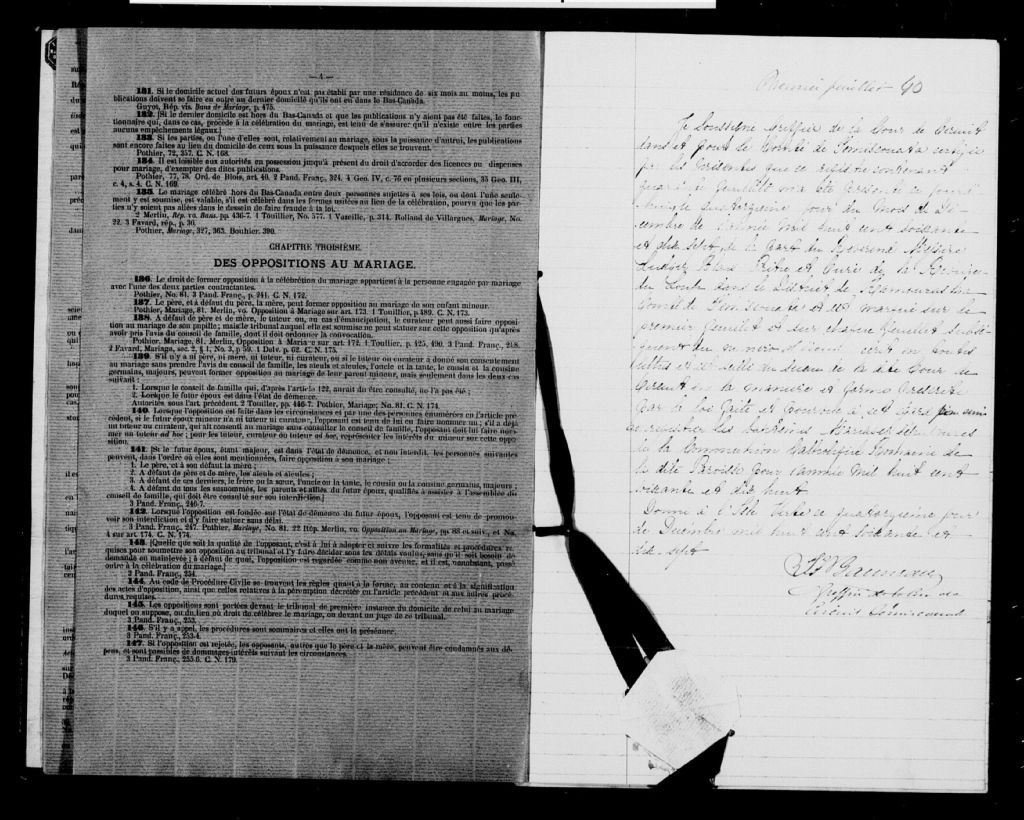 —4—
131. Si le domicile actuel des futurs époux n'est pas établi par une résidence de six mois au moins, les pu-
blications doivent se faire en outre au dernier domicile qu'ils ont eu dans le Bas-Canada.
Guyot, Rép. vis. Bans de Mariage, p. 475.
132. [Si le dernier domicile est hors du Bas-Canada et que les publications n'y aient pas été faites, le fonc-
tionnaire qui, dans ce cas, procède à la célébration du mariage, est tenu de s'assurer qu'il n'existe entre les parties
aucuns empêchements légaux.]
133. Si les parties, ou l'une d'elles sont, relativement au mariage, sous la puissance d'autrui, les publications
sont encore faites au lieu du domicile de ceux sous la puissance desquels elles se trouvent.
Pothier, 72, 357. C. N. 168.
134. Il est loisible aux autorités en possession jusqu'à présent du droit d'accorder des licences ou dispenses
pour mariage, d'exempter des dites publications.
Pothier, 77, 78. Ord. de Blois, art. 40. 2 Pand. Franç., 324. 4 Geo. IV, c. 76 en plusieurs sections, 35 Geo. III,
c. 4, s. 4. C. N. 169.
135. Le mariage célébré hors du Bas-Canada entre deux personnes sujettes à ses lois, ou dont l'une seule-
ment y est soumise, est valable, s'il est célébré dans les formes usitées au lieu de la célébration, pourvu que les par-
ties n'y soient pas allées dans le dessein de faire fraude à la loi.
2 Merlin, Rép. vo. Bans. pp. 436-7. 1 Touillier, No. 577. 1 Vazeille, p. 314. Rolland de Villargues, Mariage, No.
22. 3 Favard, rép., p. 30.
Pothier, Mariage, 327, 363. Bouhier. 390.
CHAPITRE TROISIÈME.
DES OPPOSITIONS AU MARIAGE.
136. Le droit de former opposition à la célébration du mariage appartient à la personne engagée par mariage
avec l'une des deux parties contractantes.
Pothier, No. 81. 3 Pand. Franç., p. 241. C. N. 172.
137. Le père, et à défaut du père, la mère, peut former opposition au mariage de son enfant mineur.
Pothier, Mariage, 81. Merlin, vo. Opposition à Mariage sur art. 173. 1 Touillier, p 489. C. N. 173.
138. A défaut de père et de mère, le tuteur ou, au cas d'émancipation, le curateur peut aussi former opposi-
tion au mariage de son pupille; mais le tribunal auquel elle est soumise ne peut statuer sur cette opposition qu'après
avoir pris l'avis du conseil de famille, dont il doit ordonner la convocation.
Pothier, Mariage, 81. Merlin, Opposition à Maria e sur art. 172. 1 Toullier, p. 425, 490. 3 Pand. Franç., 248.
2 Favard, Mariage, sec. 2, § 1, No. 3, p 59. 1 Delv. p. 62. C. N. 175.
139. S'il n'y a ni père, ni mère, ni tuteur, ni curateur, ou si le tuteur ou curateur a donné son consentement
au mariage sans prendre l'avis du conseil de famille, les aïeuls et aïeules, l'oncle et la tante, le cousin et la cousine
germains, majeurs, peuvent former opposition au mariage de leur parent mineur, mais seulement dans les deux cas
suivant :
1. Lorsque le conseil de famille qui, d'après l'article 122, aurait du être consulté, ne l'a pas été ;
2. Lorsque le futur époux est dans l'état de démence.
Autorités sous l'art précédent. 2 Touiller, pp. 446-7. Pothier, Mariage; No. 81. C. N. 174.
140. Lorsque l'opposition est faite dans les circonstances et par une des personnes énumérées en l'article pré-
cédent, si le futur époux mineur n'a ni tuteur ni curateur, l'opposant est tenu de lui en faire nommer un ; s'il a déjà
un tuteur ou curateur, qui ait consenti au mariage sans consulter le conseil de famille, l'opposant doit lui faire nom-
mer un tuteur ad hoc ; pour les tuteur, curateur ou tuteur ad hoc, représenter les intérêts du mineur sur cette oppo
sition.
141. [Si le futur époux, étant majeur, est dans l'état de démence, et non interdit, les personnes suivantes
peuvent, dans l'ordre où elles sont mentionnées, faire opposition à son mariage :
1. Le père, et à son défaut la mère ;
2. A défaut de père et de mère, les aïeuls et aïeules ;
3. A défaut de ces derniers, le frère ou la sœur, l'oncle ou la tante, le cousin ou la cousine germains, majeurs ;
4. A défaut de tous les susnommés, les parents et alliés du futur époux, qualifiés à assister à l'assemblée du
conseil de famille, qui doit être consulté sur son interdiction.]
3 Pand. Franç. 246-7.
142. Lorsque l'opposition est fondée sur l'état de démence du futur époux, l'opposant est tenu de promou-
voir son interdiction et d'y faire statuer sans délai.
3 Pand. Franç. 247. Pothier, Mariage, No. 81. 22 Rép. Merlin, vo. Opposition au Mariage, pp. 88 et suiv., et No.
4 sur art. 174. C. N. 174.
143. [Quelle que soit la qualité de l'opposant, c'est à lui à adopter et suivre les formalités et procédures re-
quises pour soumettre son opposition au tribunal et l'y faire décider sous les délais voulus, sans qu'il soit besoin de
demande en mainlevée ; à défaut de quoi, l'opposition est regardée comme non avenue, et il est, nonobstant, passé
outre à la célébration du mariage.]
2 Pand. Franç. 254.
144. Au code de Procédure Civile se trouvent les règles quant à la forme, au contenu et à la signification
des actes d'opposition, ainsi que celles relatives à la péremption décrétée en l'article précédent et aux autres procé-
dures requises.
145. Les oppositions sont portées devant le tribunal de première instance du domicile de celui au mariage
duquel on s'oppose, ou du lieu où doit se célébrer le mariage, ou devant un juge de ce tribunal.
3 Pand. Franç., 253.
146. S'il y a appel, les procédures sont sommaires et elles ont la préséance.
3 Pand. Franç. 253-4.
147. Si l'opposition est rejetée, les opposants, autres que le père et la mère, peuvent être condamnés aux dé-
pens, et sont passibles de dommages-intérêts suivant les circonstances.
3 Pand. Franç., 255.6. C. N. 179.
Premier feuillet 40
Je Soussigné Greffier de la Cour de Circuit
dans et pour le Comté de Témiscouata certifie
par les présentes que ce registre contenant
quarante feuillets m'a été présenté ce jourd'
quatorzième jour du mois de Dé-
cembre de l'année mil huit cent soixante
et dix sept de la part du Révérend Messire
Ludger Blais Prêtre et Curé de la
dans le District de Kamouraska
Comté de Témiscouata et est marqué sur le
premier feuillet et sur chaque feuillet subsé-
quent du numéro écrit en toutes
lettres et du sceau de la dite Cour
en la manière et forme
par la loi faite et pourvue à cet égard
la Communion Catholique Romaine de
la dite Paroisse pour l'année mil huit cent
soixante et dix huit
Donné à l'Isle Verte ce quatorzième jour
de Décembre mil huit cent soixante et
dix sept
Greffier de la Cour de
Circuit